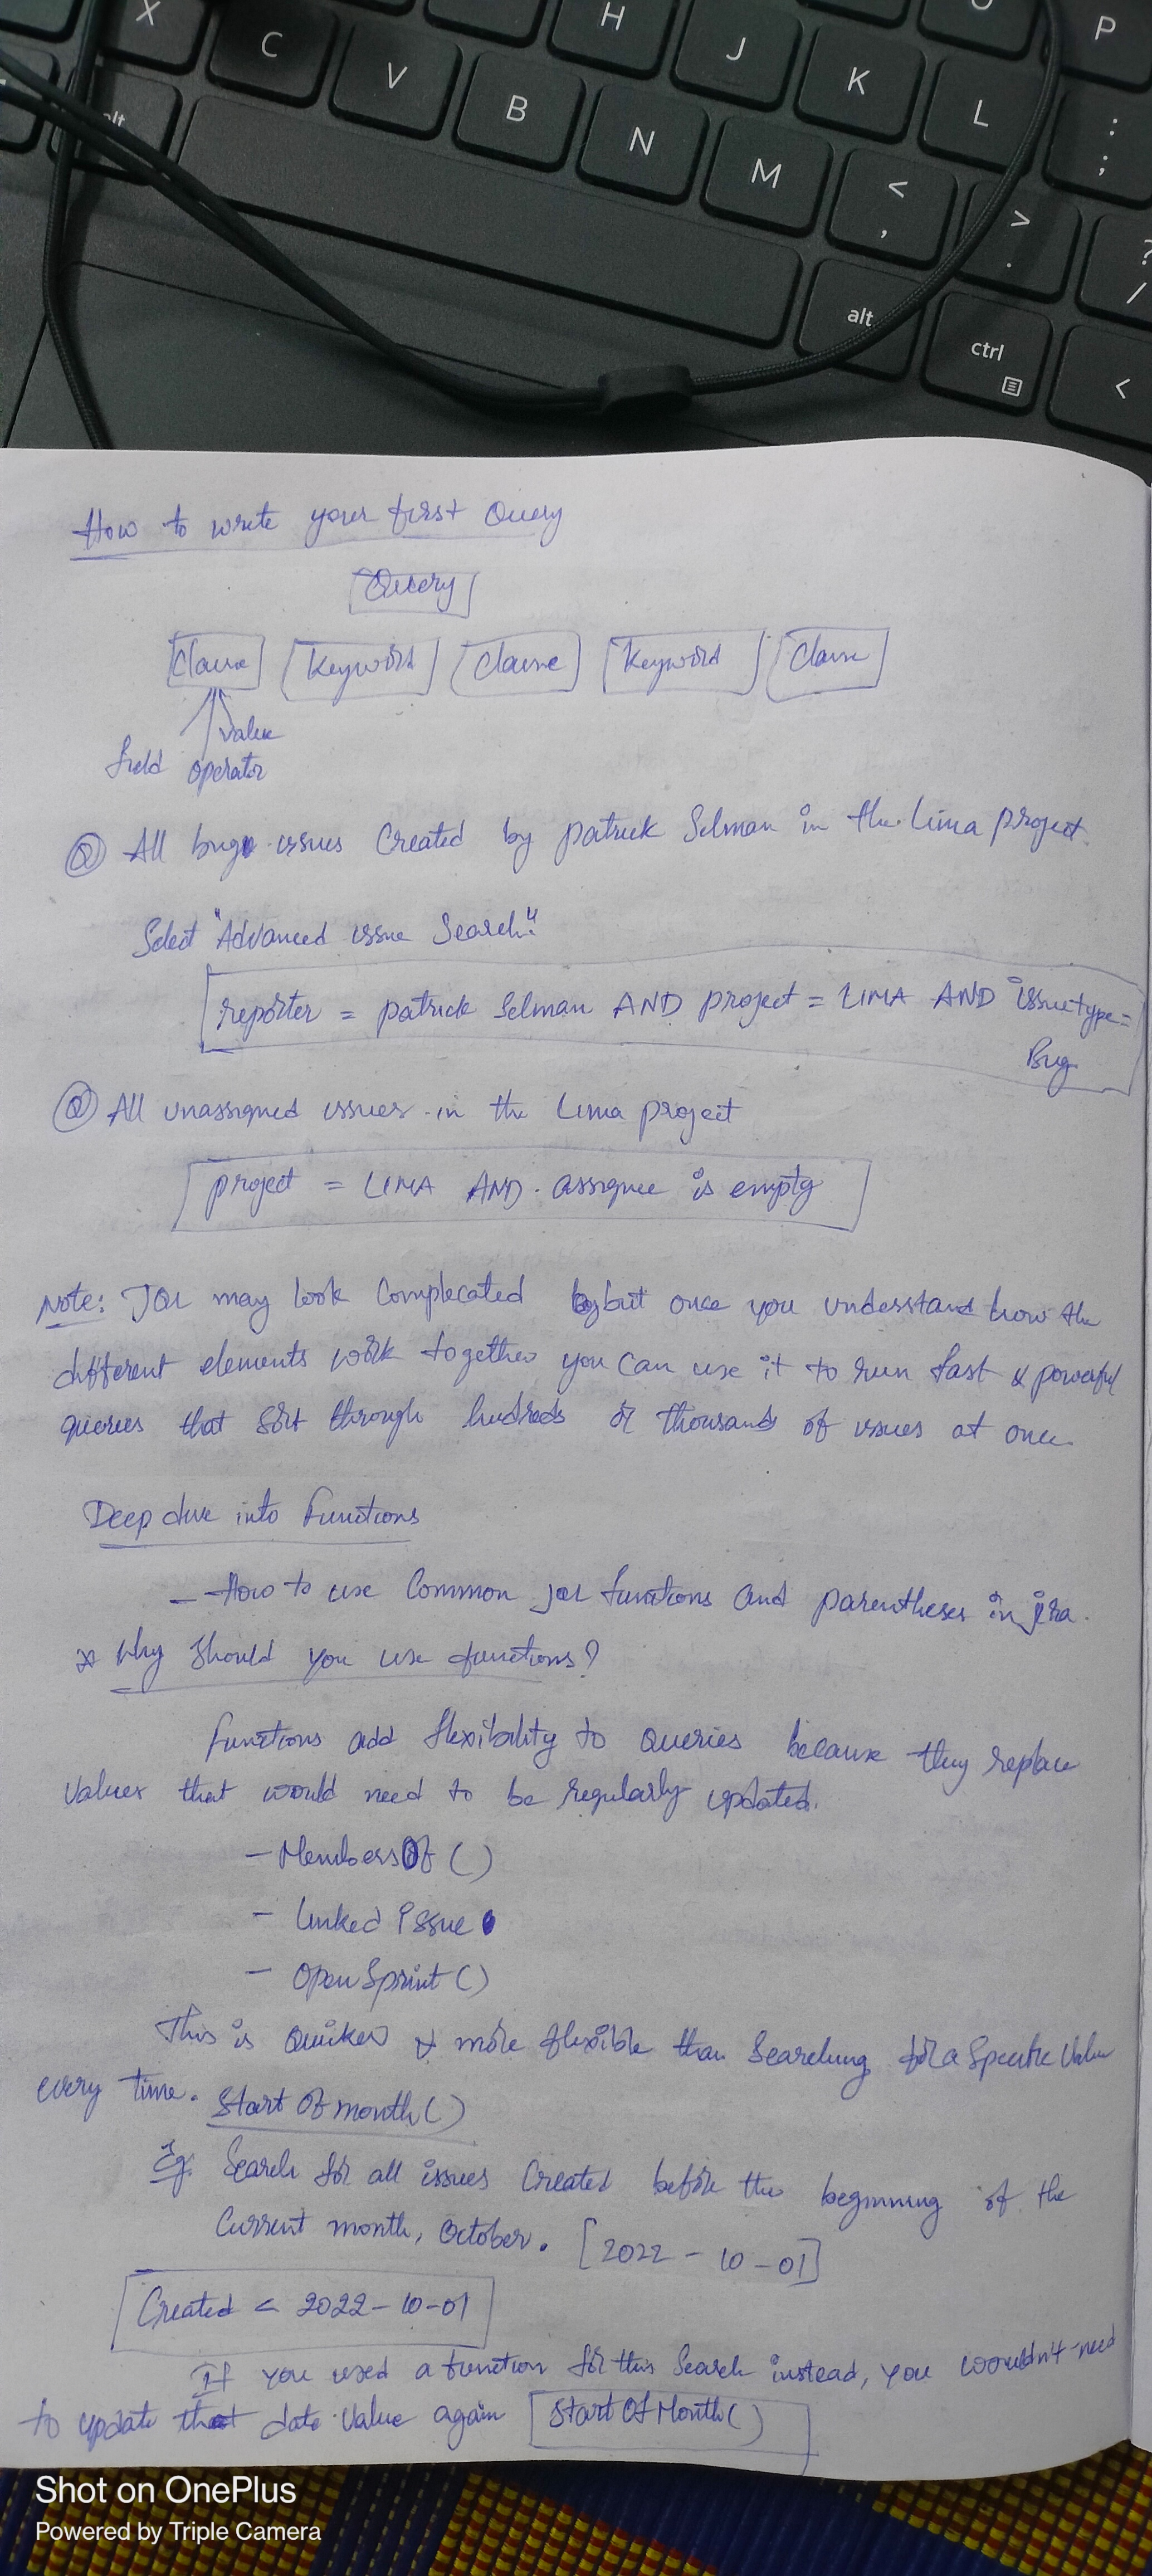 X C V B H N J M K L P
alt < , > . : ; ? /
alt ctrl <
How to write your first Query
Query
Clause Keyword Clause Keyword Clause
Value
field operator
Q All bug issues Created by patrick Selman in the Lima project.
Select "Advanced issue Search"
reporter = patrick Selman AND project = LIMA AND issuetype =
Bug
Q All unassigned issues in the Lima project
project = LIMA AND assignee is empty
Note: JQL may look Complecated but once you understand how the
different elements work together you can use it to run fast & powerful
queries that sort through hudreds or thousands of issues at once
Deep dive into functions
- How to use Common JQL functions and parentheses in jira.
* Why should you use functions?
functions add flexibility to queries because they replace
Values that would need to be regularly updated.
- MembersOf ( )
- linked issue
- Open Sprint ( )
This is Quicker & more flexible than Searching for a Specific Value
every time. Start Of month ( )
Eg. Search for all issues Created before the beginning of the
Current month, October. [2022 - 10 - 01]
Created < 2022 - 10 - 01
If you used a function for this Search instead, you wouldn't need
to update that date Value again Start Of Month ( )
Shot on OnePlus
Powered by Triple Camera